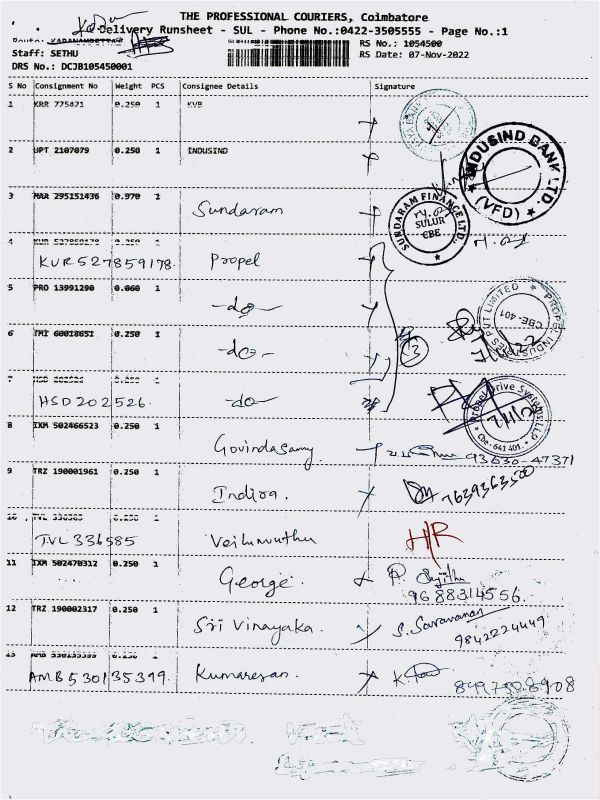 THE PROFESSIONAL COURIERS, Coimbatore
Delivery Runsheet - SUL - Phone No.:0422-3505555 - Page No.:1
RS No.: 1054500
Staff: SETHU
RS Date: 07-Nov-2022
DRS No.: DCJB105450001
S No Consignment No Weight PCS Consignee Details Signature
1 KRR 775471 0.250 1 KVB
2 UPT 2107079 0.250 1 INDUSIND
INDUSIND BANK LTD. (VFD)
3 MAA 295151436 0.970 1 Sundaram
SUNDARAM FINANCE LTD., SULUR CBE
4 KUR 527859178 0.250 1
KUR527859178. Propel
5 PRO 13991290 0.060 1 -do-
PROPEL INDUSTRIES PVT LIMITED CBE-401
6 TMT 60018651 0.250 1 -do-
3
7 HSD 202526 1
HSD202526 -do-
Propel Drive Systems LLP Cbe-641 401.
8 IXM 502466523 0.250 1 Govindasamy 93630-47371
9 TRZ 190001961 0.250 1 Indira. 7639363500
10 TVL 336585 0.250 1
TVL 336585 HR
11 IXM 502470312 0.250 1 George.
9688314556.
12 TRZ 190002317 0.250 1 Sri Vinayaka. S. Saravanan
9842224449
13 AMB 530135399 0.250 1
AMB530135399 Kumaresan.